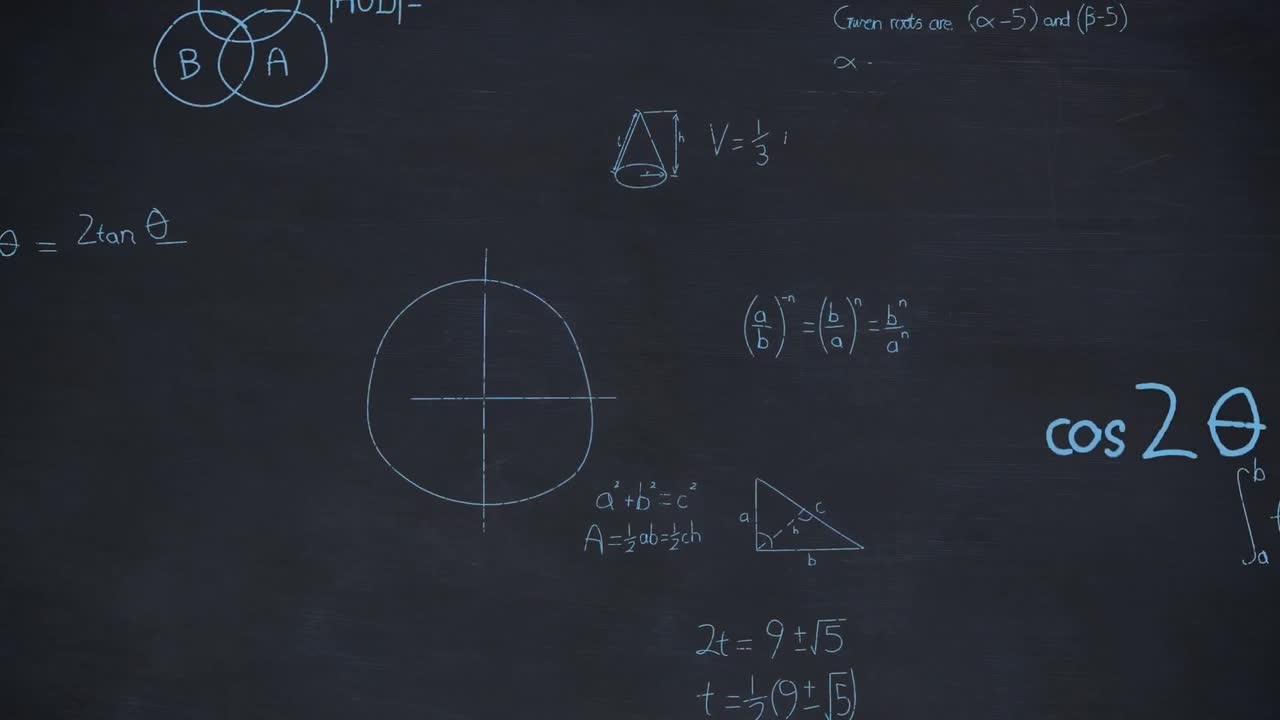 B A
Given roots are (α-5) and (β-5)
α -
l h r
V = 1/3
θ = 2tan θ
(a/b)⁻ⁿ = (b/a)ⁿ = bⁿ/aⁿ
cos 2θ
∫ b a
a² + b² = c²
A = ½ab = ½ch
a b c h
2t = 9 ± √5
t = ½(9 ± √5)